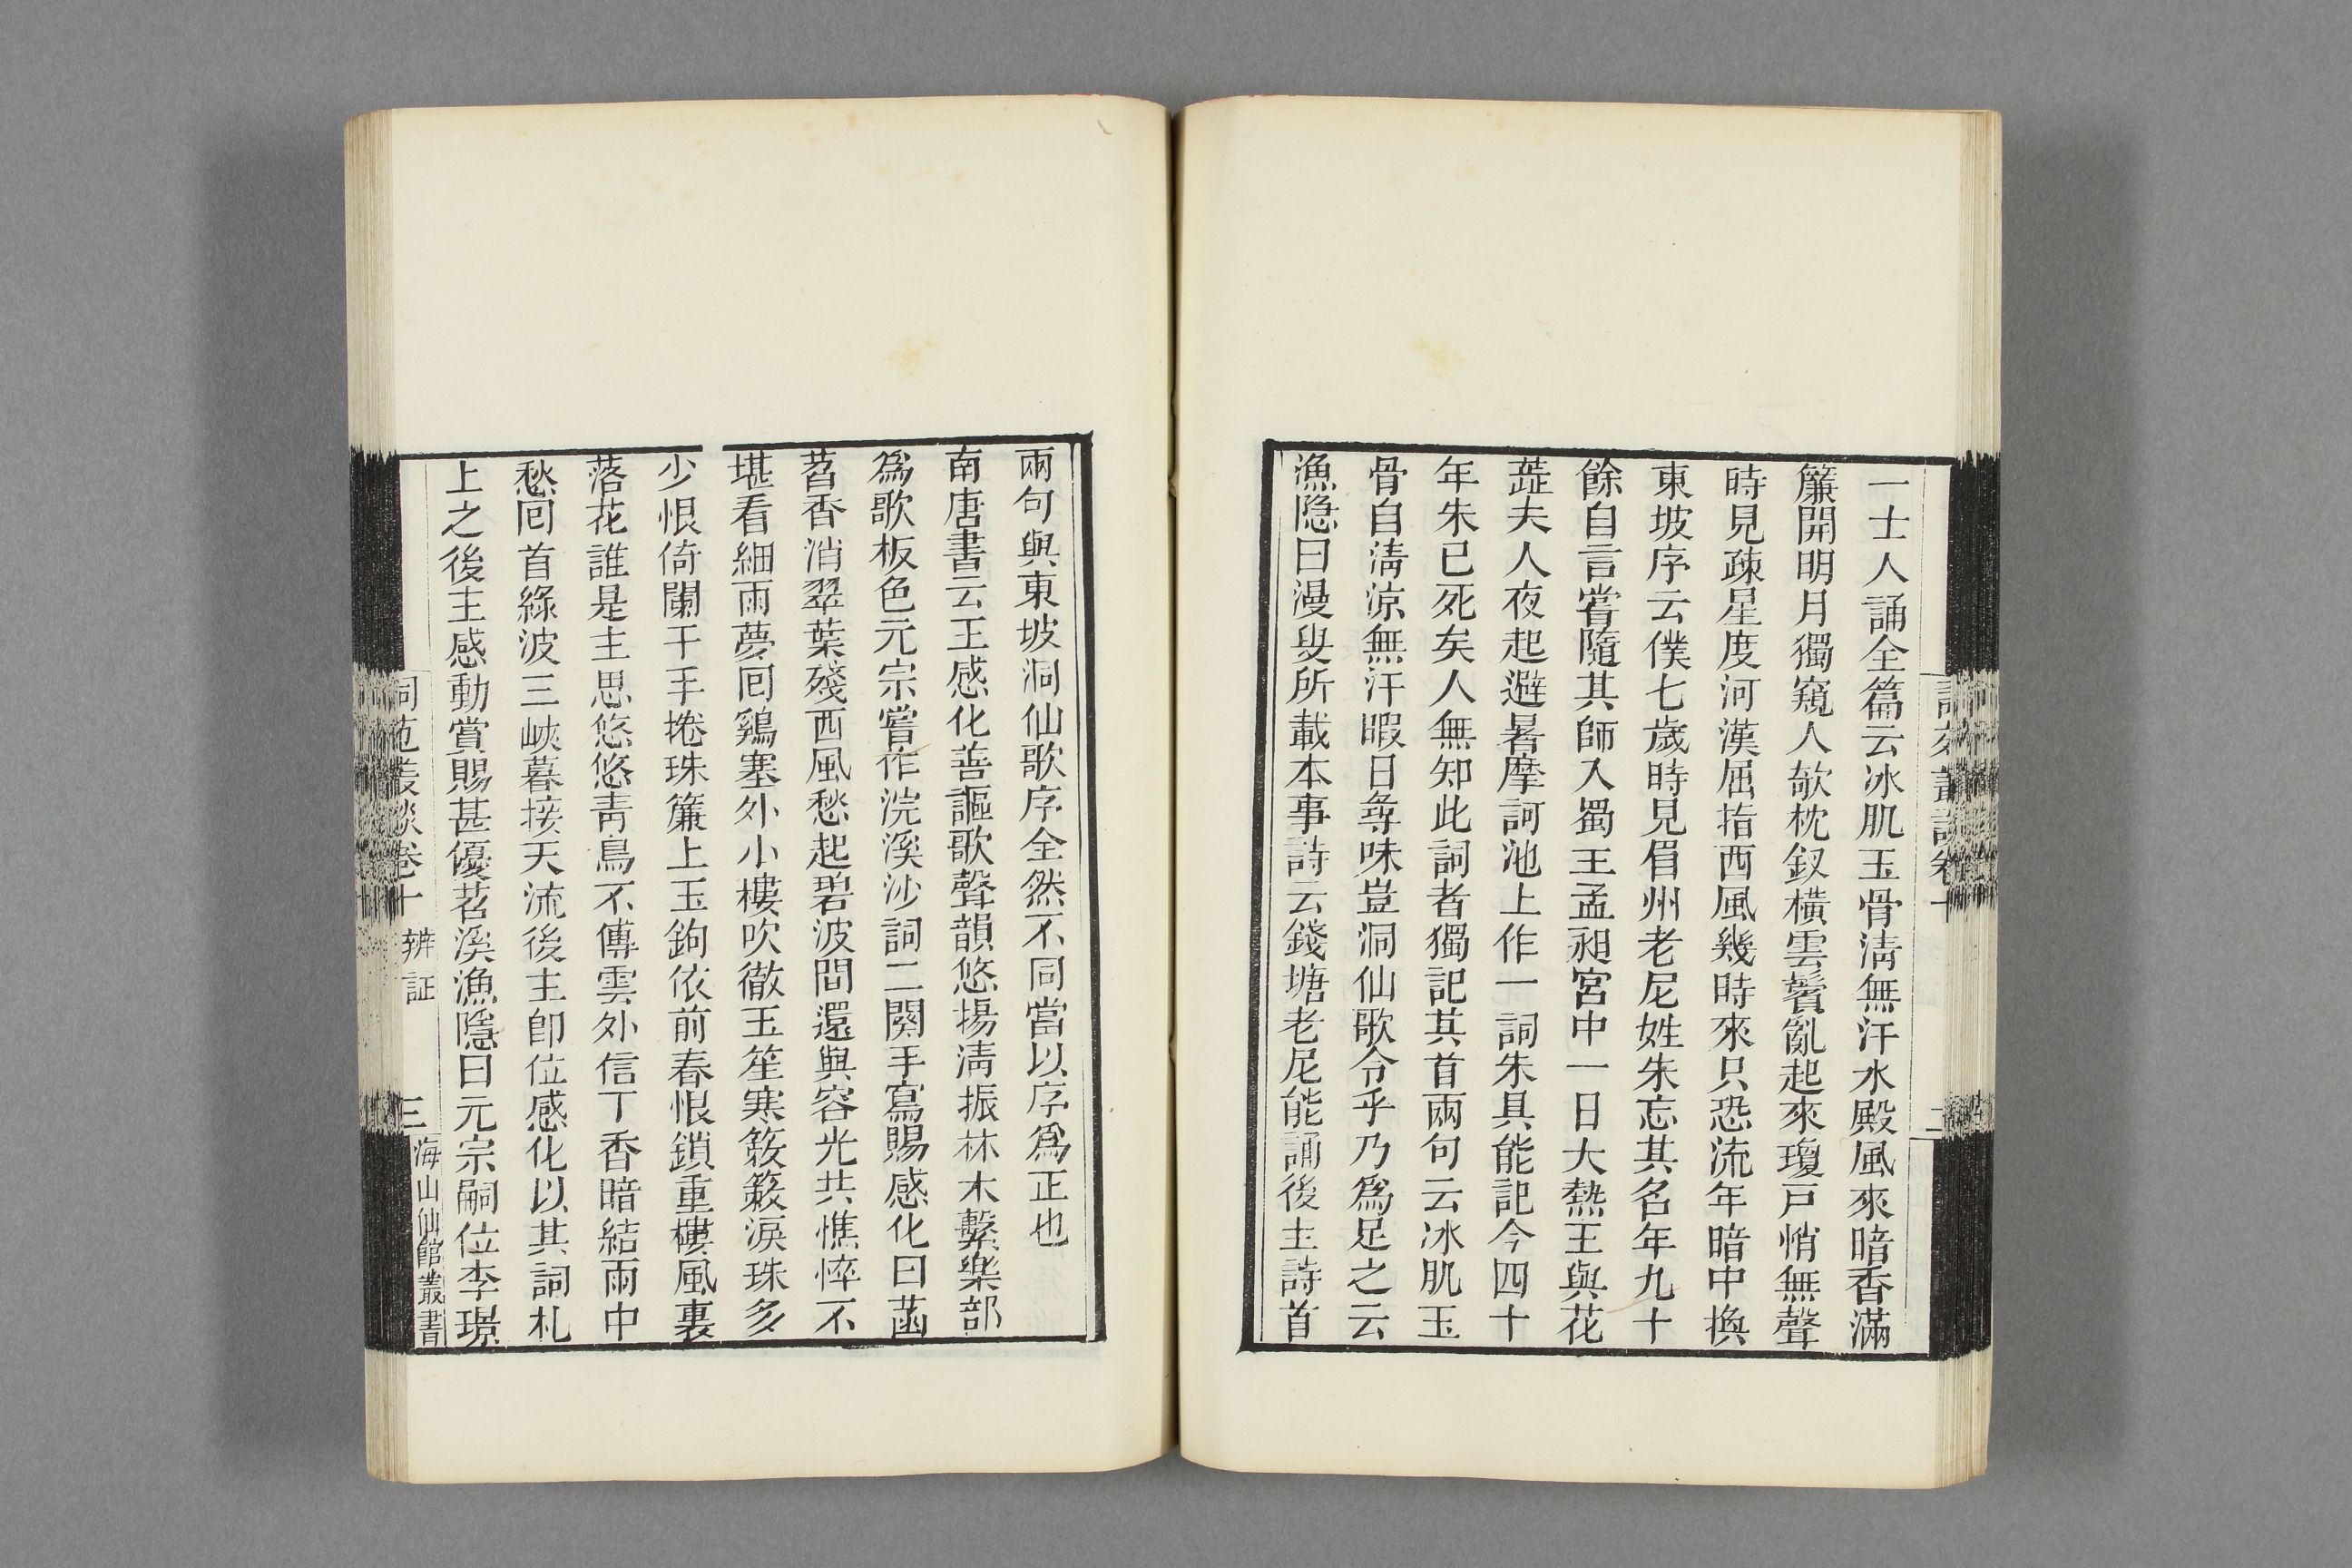 一士人誦全篇云冰肌玉骨淸無汗水殿風來暗香滿
簾開明月獨窺人欹枕釵橫雲鬢亂起來瓊戸悄無聲
時見疎星度河漢屈指西風幾時來只恐流年暗中換
東坡序云僕七歲時見眉州老尼姓朱忘其名年九十
餘自言嘗隨其師入蜀王孟昶宮中一日大熱王與花
蕋夫人夜起避暑摩訶池上作一詞朱具能記今四十
年朱已死矣人無知此詞者獨記其首兩句云冰肌玉
骨自淸涼無汗暇日尋味豈洞仙歌令乎乃爲足之云
漁隐曰漫叟所載本事詩云錢塘老尼能誦後主詩首
兩句與東坡洞仙歌序全然不同當以序爲正也
南唐書云王感化善謳歌聲韻悠揚淸振林木繫樂部
爲歌板色元宗嘗作浣溪沙詞二闋手寫賜感化曰菡
萏香消翠葉殘西風愁起碧波間還與容光共憔悴不
堪看細雨夢回鷄塞外小樓吹徹玉笙寒簌簌淚珠多
少恨倚闌干手捲珠簾上玉鉤依前春恨鎖重樓風裏
落花誰是主思悠悠靑鳥不傳雲外信丁香暗結雨中
愁回首綠波三峽暮接天流後主卽位感化以其詞札
上之後主感動賞賜甚優苕溪漁隱曰元宗嗣位李璟
詞苑叢談卷十 辨証 三 海山仙館叢書